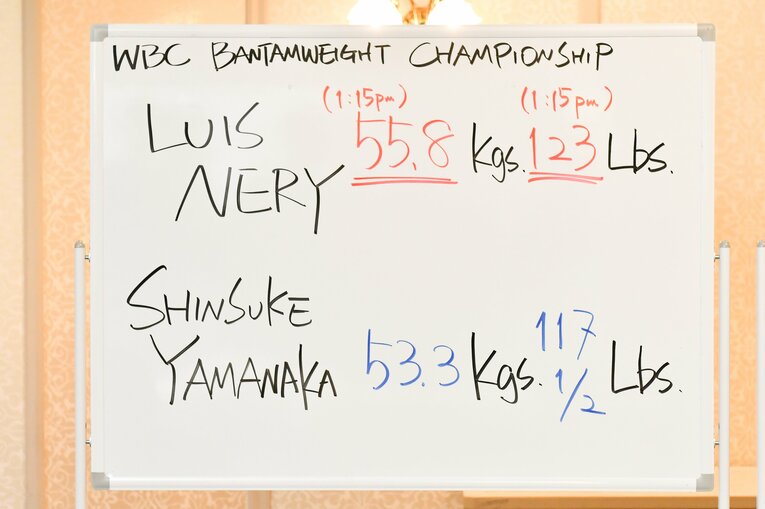 WBC BANTAMWEIGHT CHAMPIONSHIP
(1:15pm) (1:15pm)
LUIS NERY 55.8 Kgs. 123 Lbs.
SHINSUKE
YAMANAKA 53.3 Kgs. 117 1/2 Lbs.